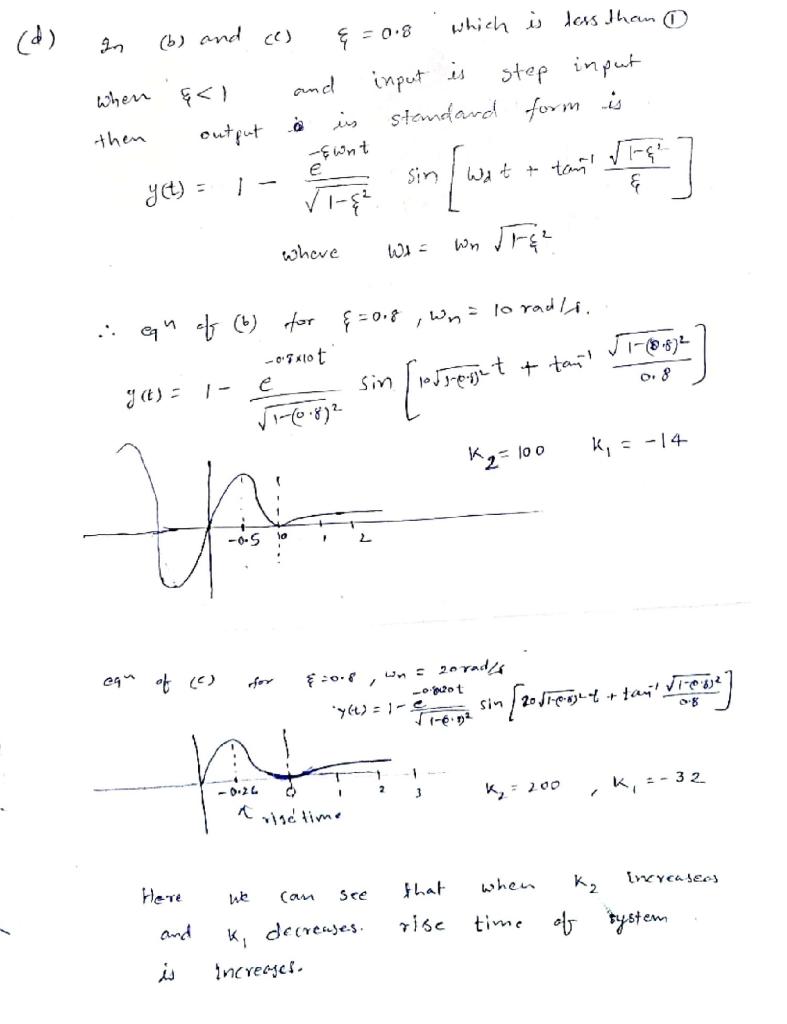 (d) In (b) and (c) ξ = 0.8 which is less than ①
when ξ < 1 and input is step input
then output is in standard form is
y(t) = 1 - e^{-ξωnt}/√(1-ξ²) sin [ωd t + tan⁻¹ √(1-ξ²)/ξ]
where ωd = ωn √(1-ξ²)
∴ eqn of (b) for ξ = 0.8, ωn = 10 rad/s.
y(t) = 1 - e^{-0.8×10t}/√(1-(0.8)²) sin [10√(1-(0.8)²) t + tan⁻¹ √(1-(0.8)²)/0.8]
K₂ = 100 K₁ = -14
-0.5 10 1 2
eqn of (c) for ξ = 0.8, ωn = 20 rad/s
y(t) = 1 - e^{-0.8×20t}/√(1-(0.8)²) sin [20√(1-(0.8)²) t + tan⁻¹ √(1-(0.8)²)/0.8]
-0.26 0 1 2 3
K₂ = 200, K₁ = -32
rise time
Here we can see that when K₂ increases
and K₁ decreases. rise time of system
is increases.